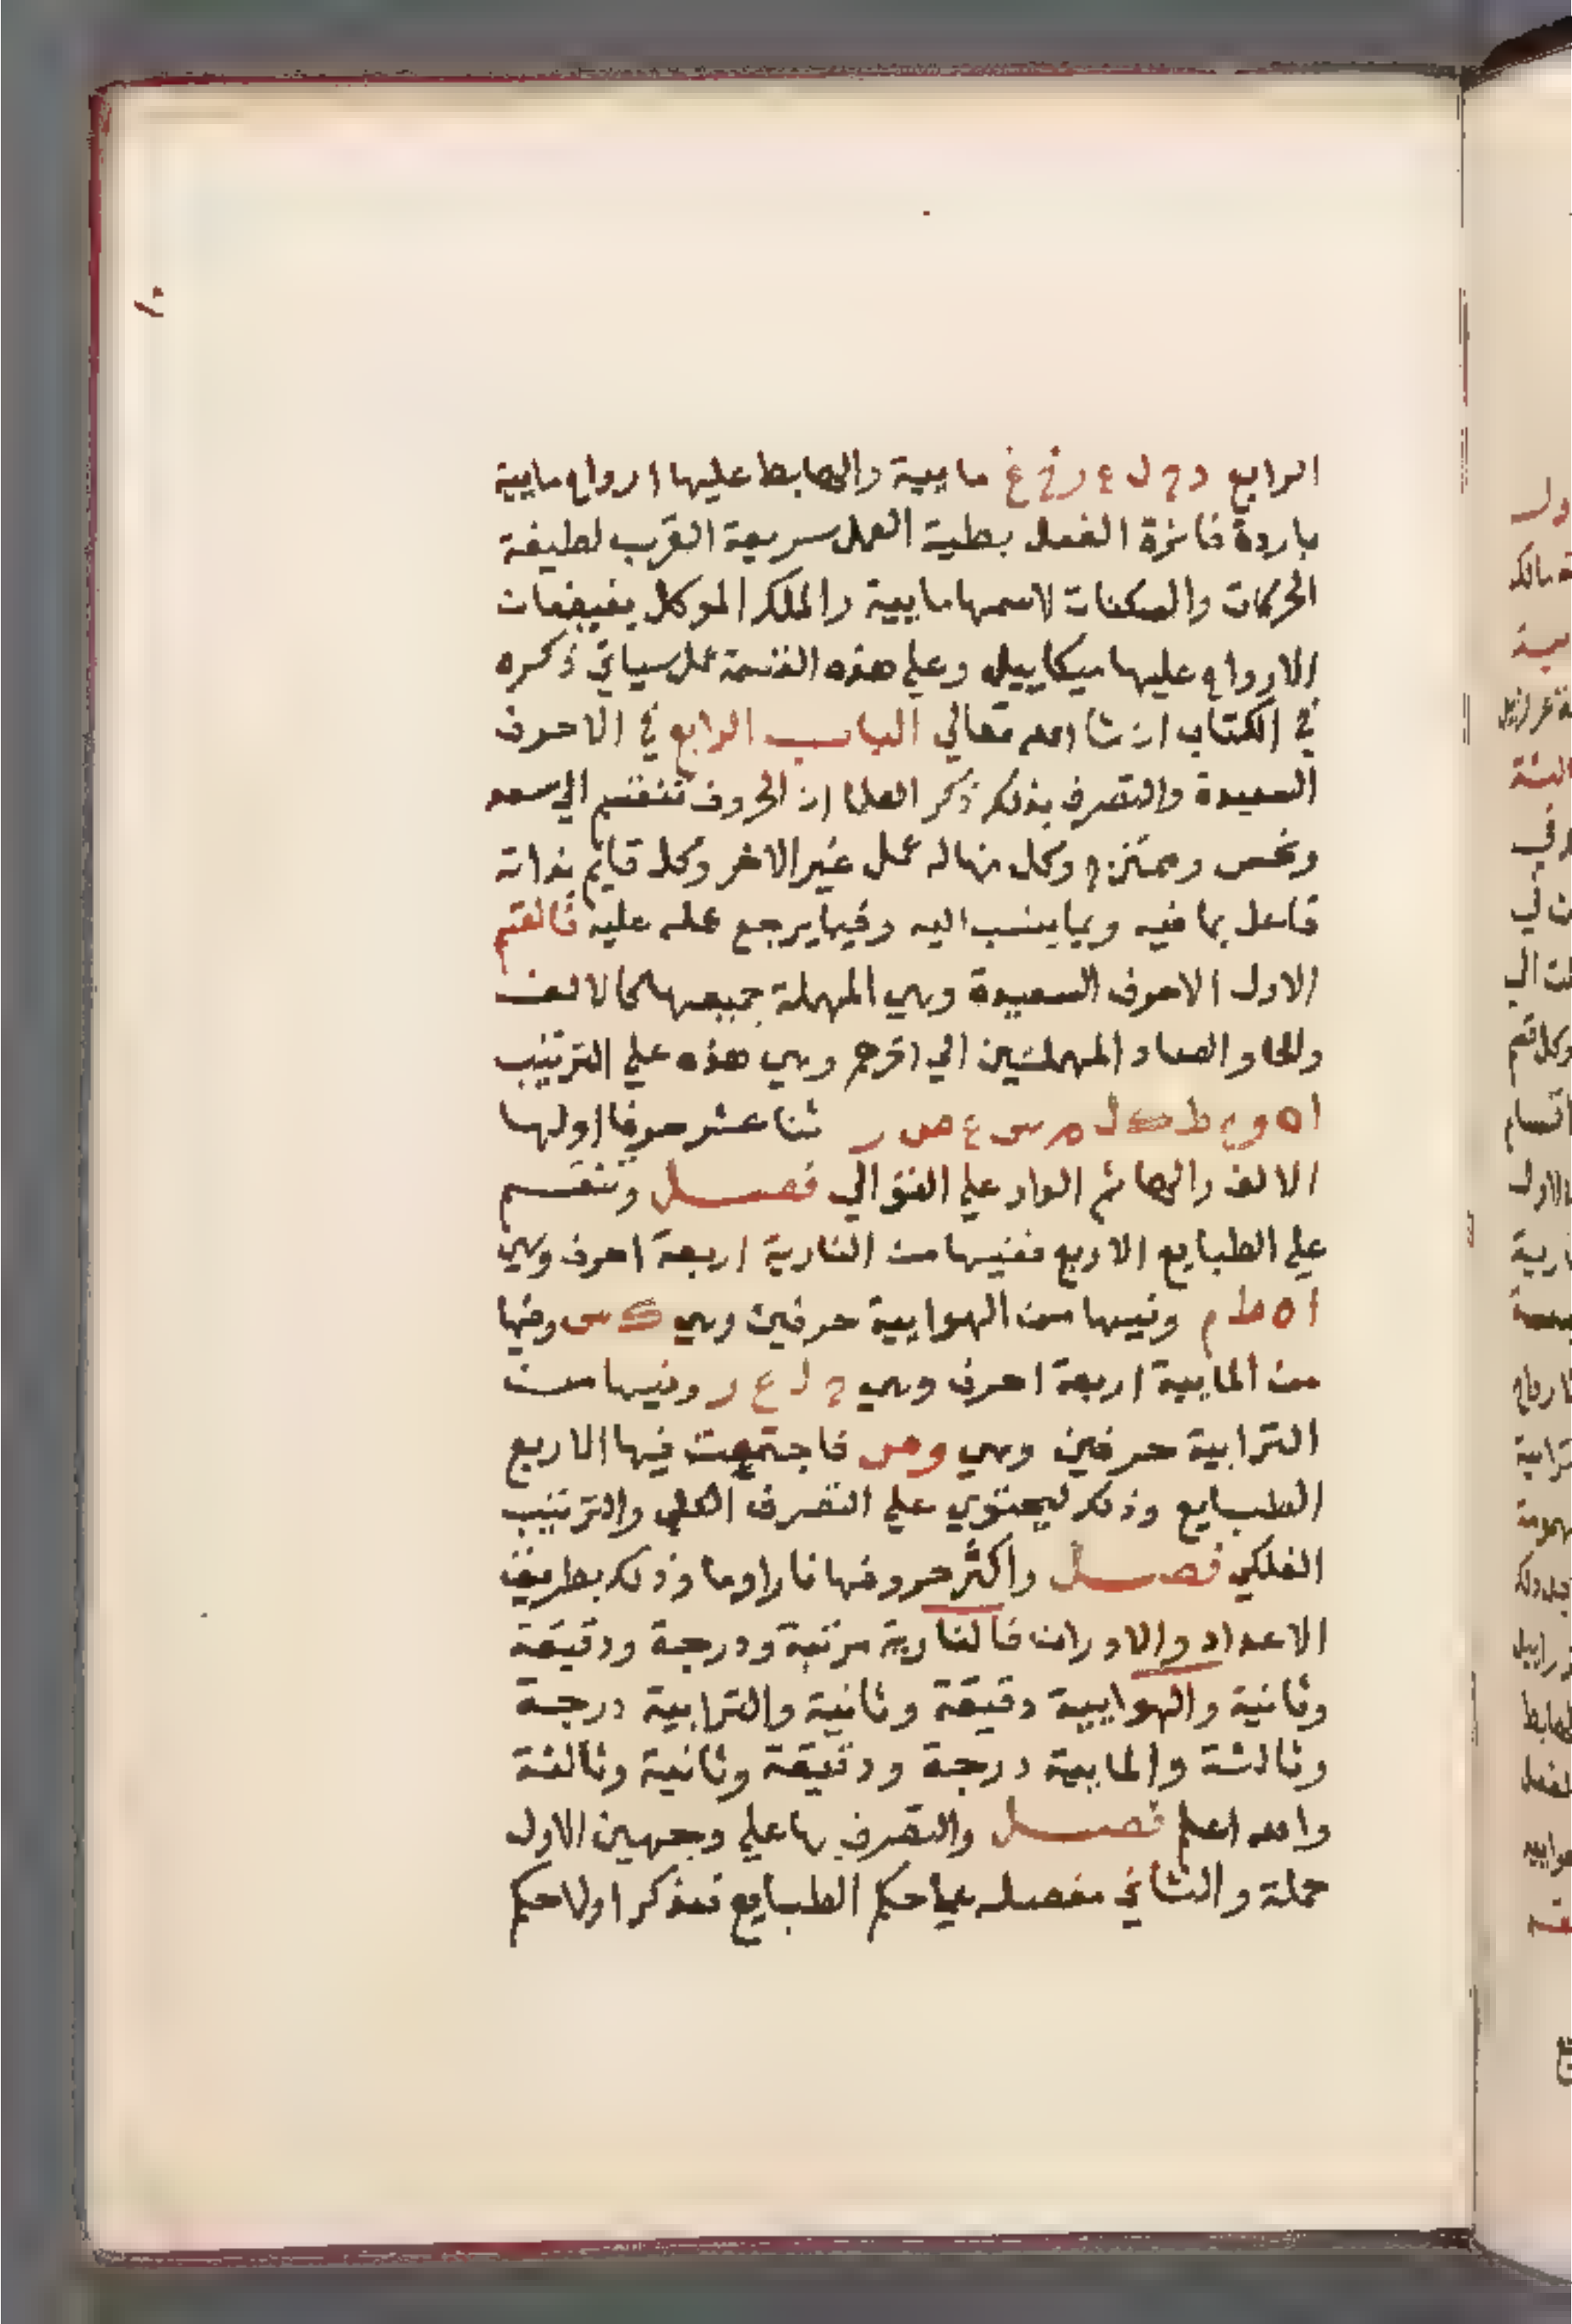 الرابع د ح ل ع ر خ غ مايية والهابط عليها ارواح مايية
باردة فاترة الفعل بطية العمل سريعة القرب لطيفة
الحركات والسكنات لاسمها مايية والملك الموكل بفيضات
الارواح عليها ميكاييل وعلي هذه القسمة عمل سياتي ذكره
في الكتاب ان شا الله تعالي الباب الرابع في الاحرف
السعيدة والتصرف بذلك ذكر العلما ان الحروف تنقسم الي سعد
ونحس وممتزج وكل منها له عمل غير الاخر وكل قايم بذاته
فاعل بما فيه وبما ينسب اليه وفيما يرجع عمله عليه فالقسم
الاول الاحرف السعيدة وهي المهملة جميعها كالالف
والحا والصاد المهملتين الي اخرهم وهي هذه علي الترتيب
ا ه و ح ط ك ل م س ع ص ر ثنا عشر حرفا اولها
الالف والها ثم الواو علي التوالي فصل وتنقسم
علي الطبايع الاربع ففيها من النارية اربعة احرف وهي
ا ه ط م وفيها من الهوايية حرفين وهي ك س وفيها
من المايية اربعة احرف وهي ح ل ع ر وفيها من
الترابية حرفين وهي و ص فاجتمعت فيها الاربع
الطبايع وذلك ليحتوي علي التصرف الكلي والترتيب
الفلكي فصل واكثر حروفها نارا وما وذلك بطريق
الاعداد والاوران فالنارية مرتبة ودرجة ودقيقة
وثانية والهوايية دقيقة وثانية والترابية درجة
وثالثة والمايية درجة ودقيقة وثانية وثالثة
والله اعلم فصل والتصرف بها علي وجهين الاول
جملة والثاني مفصله علي حكم الطبايع فنذكر اولا حكم